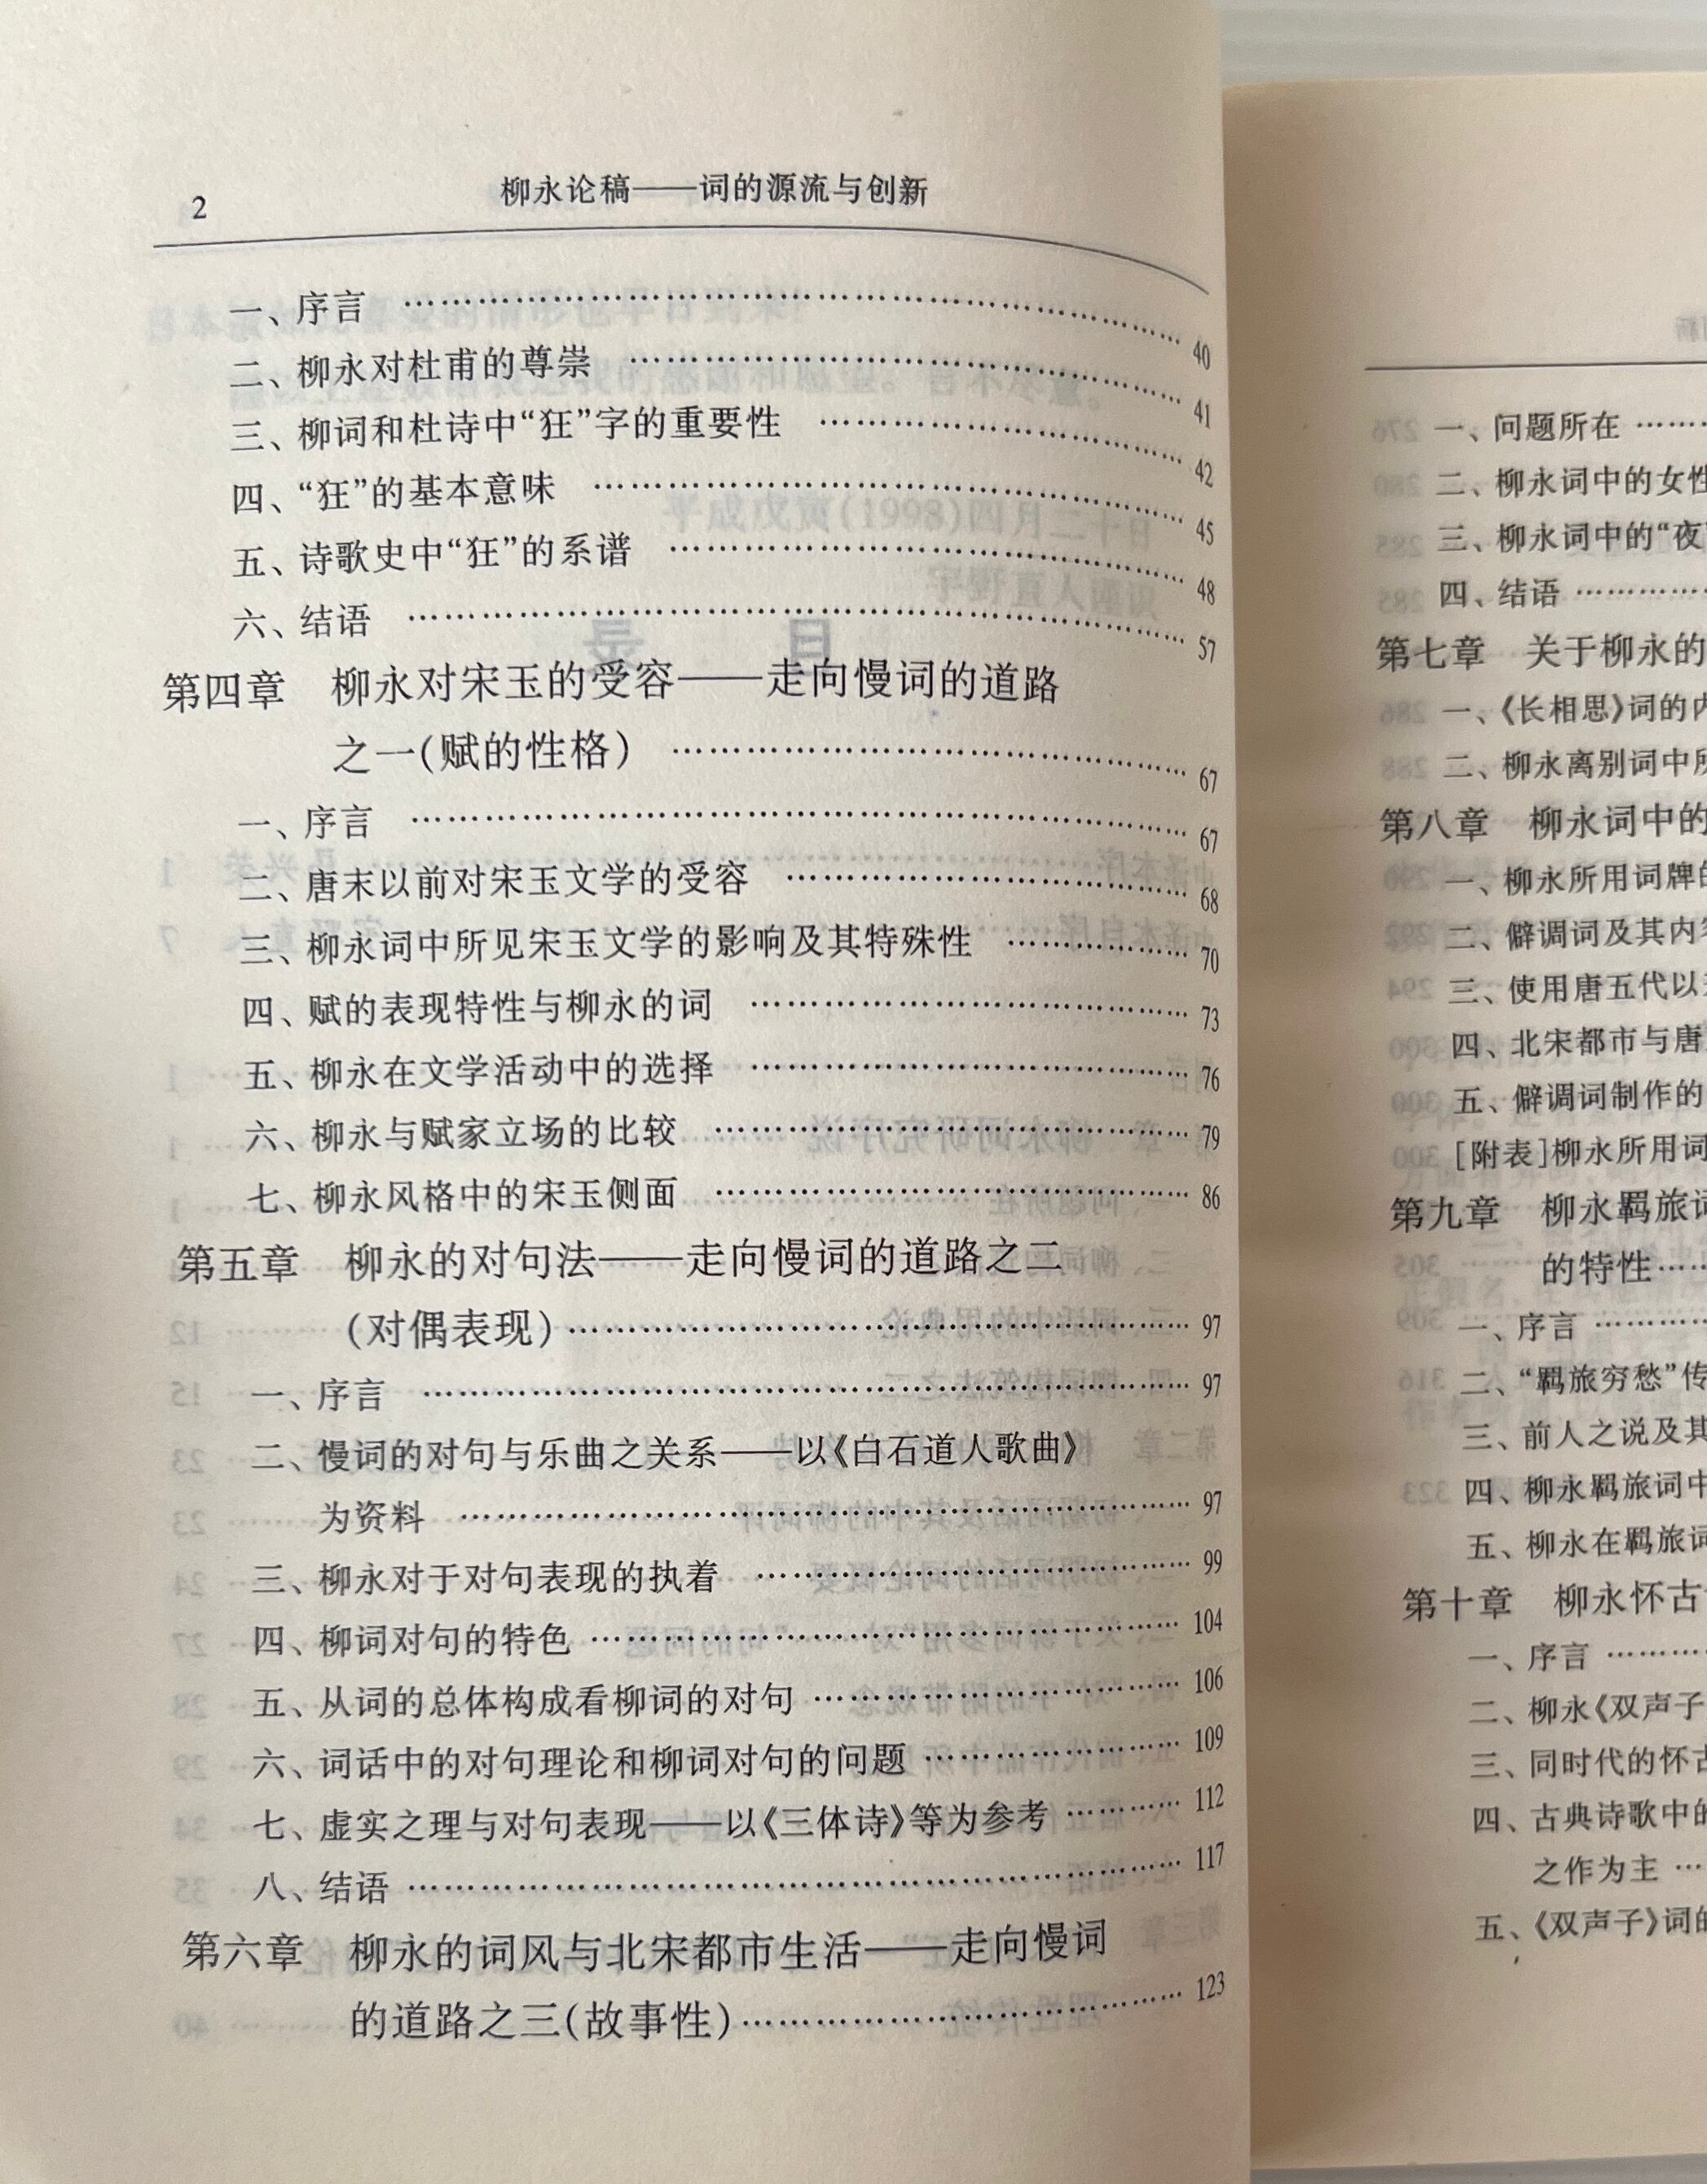 2
柳永论稿——词的源流与创新
一、序言 …… 40
二、柳永对杜甫的尊崇 …… 41
三、柳词和杜诗中“狂”字的重要性 …… 42
四、“狂”的基本意味 …… 45
五、诗歌史中“狂”的系谱 …… 48
六、结语 …… 57
第四章 柳永对宋玉的受容——走向慢词的道路
之一(赋的性格) …… 67
一、序言 …… 67
二、唐末以前对宋玉文学的受容 …… 68
三、柳永词中所见宋玉文学的影响及其特殊性 …… 70
四、赋的表现特性与柳永的词 …… 73
五、柳永在文学活动中的选择 …… 76
六、柳永与赋家立场的比较 …… 79
七、柳永风格中的宋玉侧面 …… 86
第五章 柳永的对句法——走向慢词的道路之二
(对偶表现) …… 97
一、序言 …… 97
二、慢词的对句与乐曲之关系——以《白石道人歌曲》
为资料 …… 97
三、柳永对于对句表现的执着 …… 99
四、柳词对句的特色 …… 104
五、从词的总体构成看柳词的对句 …… 106
六、词话中的对句理论和柳词对句的问题 …… 109
七、虚实之理与对句表现——以《三体诗》等为参考 …… 112
八、结语 …… 117
第六章 柳永的词风与北宋都市生活——走向慢词
的道路之三(故事性) …… 123
一、问题所在 ……
二、柳永词中的女性
三、柳永词中的“夜
四、结语 ……
第七章 关于柳永的
一、《长相思》词的内
二、柳永离别词中所
第八章 柳永词中的
一、柳永所用词牌的
二、僻调词及其内容
三、使用唐五代以
四、北宋都市与唐
五、僻调词制作的
[附表]柳永所用词
第九章 柳永羁旅词
的特性 ……
一、序言 ……
二、“羁旅穷愁”传
三、前人之说及其
四、柳永羁旅词中
五、柳永在羁旅词
第十章 柳永怀古
一、序言 ……
二、柳永《双声子
三、同时代的怀古
四、古典诗歌中的
之作为主 ……
五、《双声子》词的